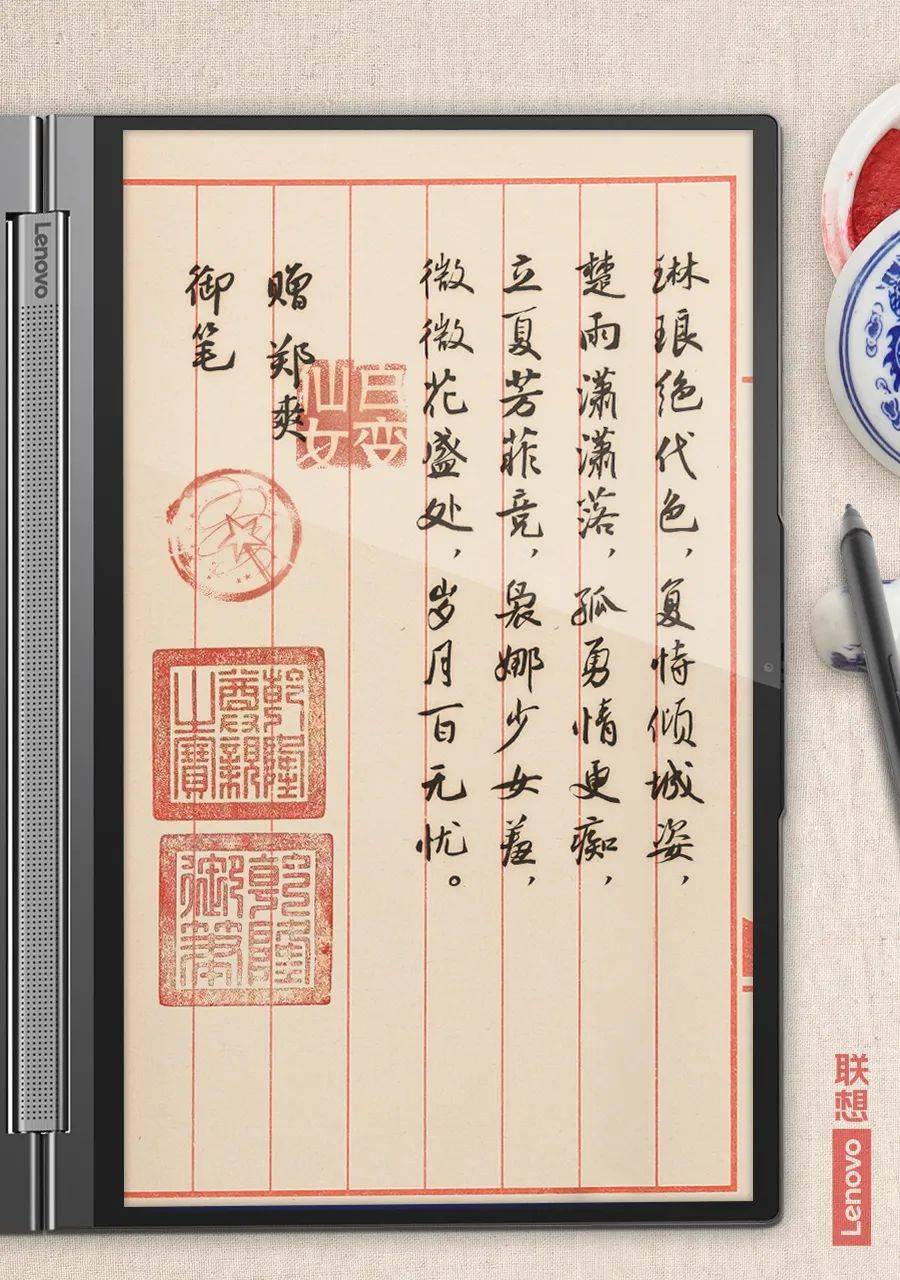 琳琅绝代色，复恃倾城姿，
楚雨潇潇落，孤勇情更痴，
立夏芳菲竞，袅娜少女羞，
微微花盛处，岁月百无忧。
赠郑爽
御笔
乾隆
御笔
Lenovo
联想
Lenovo